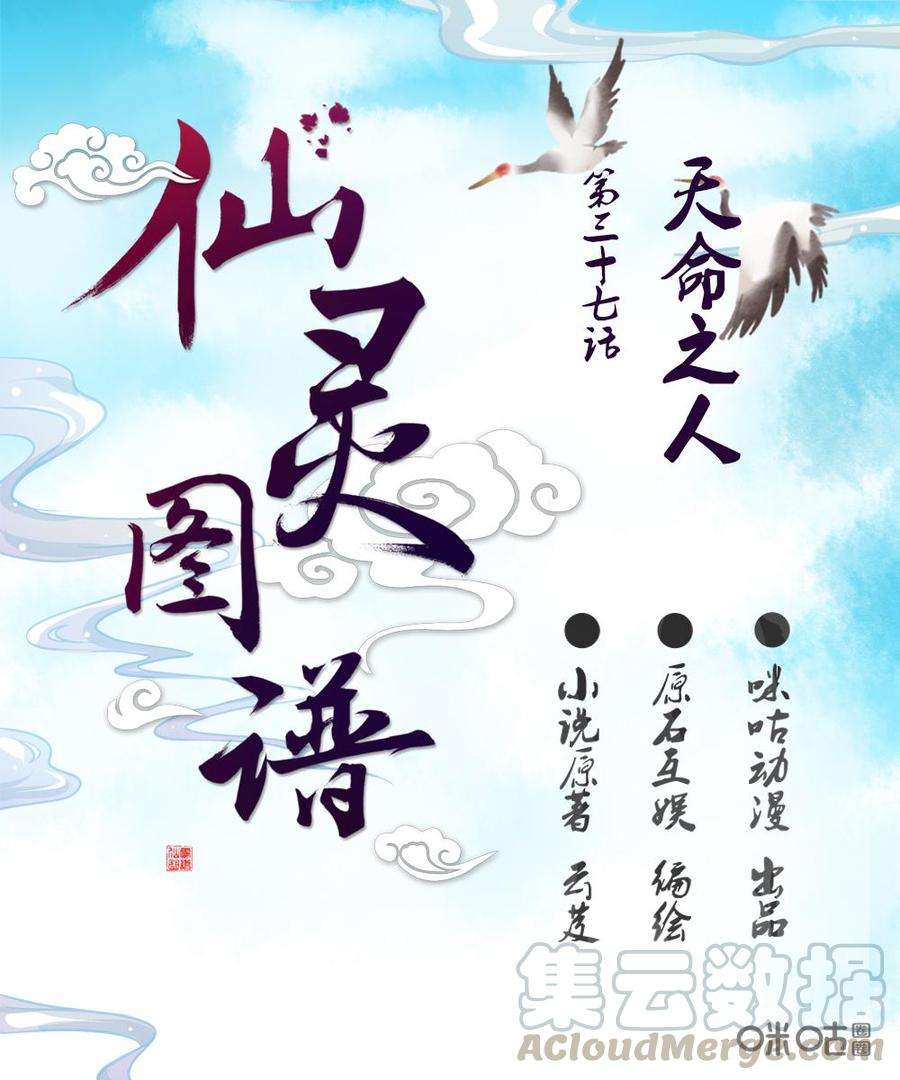 仙灵图谱
天命之人
第三十七话
咪咕动漫 出品
原石互娱 编绘
小说原著 云芨
集云数据
咪咕圈圈
ACloudMerge.com